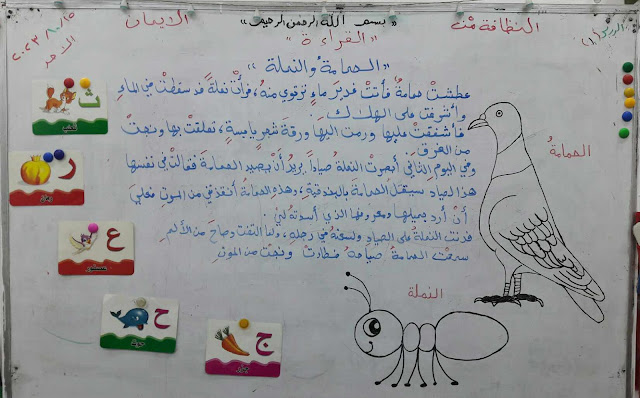 « بسم الله الرحمن الرحيم »
النظافة من الايمان
٢٠٢٣/٨/١٥
(١)
" القراءة "
" الحمامة والنملة "
عطشتْ حمامةٌ فأتتْ غديرَ ماءٍ ترتوي منهُ ، فرأتْ نملةً قد سقطتْ في الماءِ
وأشرفت على الهلاك
فأشفقت عليها ورمت اليها ورقةَ شجرٍ يابسةٍ ، تعلقت بها ونجت
من الغرق
وفي اليوم الثاني أبصرت النملةُ صياداً يريدُ أن يصيد الحمامة فقالت في نفسها
هذا الصياد سيقتل الحمامة بالبندقيةِ ، وهذهِ الحمامة أنقذتني من الموت فعليَ
أنْ أرد جميلها ومعروفها الذي أسدتهُ لي
فدنت النملةُ على الصيادِ ولسعتهُ في رجلهِ ، ولما التفت وصاح من الألمِ
سمعت الحمامةُ صياحهُ فطارتْ ونجت من الموتِ
الحمامةُ
النملة
ث
ثعلب
ر
رمان
ع
عصفور
ح
حوت
ج
جزر